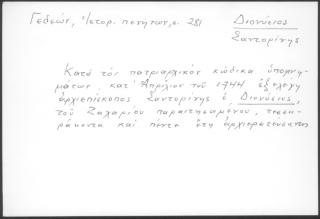 Γεδεών, Ἱστορ. πενήτων, σ. 281
Διονύσιος
Σαντορίνης
Κατὰ τὸν πατριαρχικὸν κώδικα ὑπομνη-
μάτων, κατ' Ἀπρίλιον τοῦ 1744 ἐξελέγη
ἀρχιεπίσκοπος Σαντορίνης ὁ Διονύσιος,
τοῦ Ζαχαρίου παραιτησαμένου, τεσσα-
ράκοντα καὶ πέντε ἔτη ἀρχιερατεύσαντος